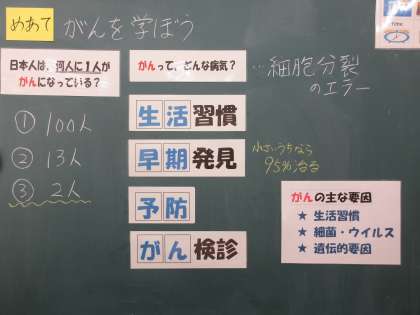 めあて がんを学ぼう
日本人は、何人に1人が
がんになっている?
① 100人
② 13人
③ 2人
がんって、どんな病気?
…細胞分裂
のエラー
生活習慣
早期発見
小さいうちなら
95%治る
予防
がん検診
がんの主な要因
★ 生活習慣
★ 細菌・ウイルス
★ 遺伝的要因